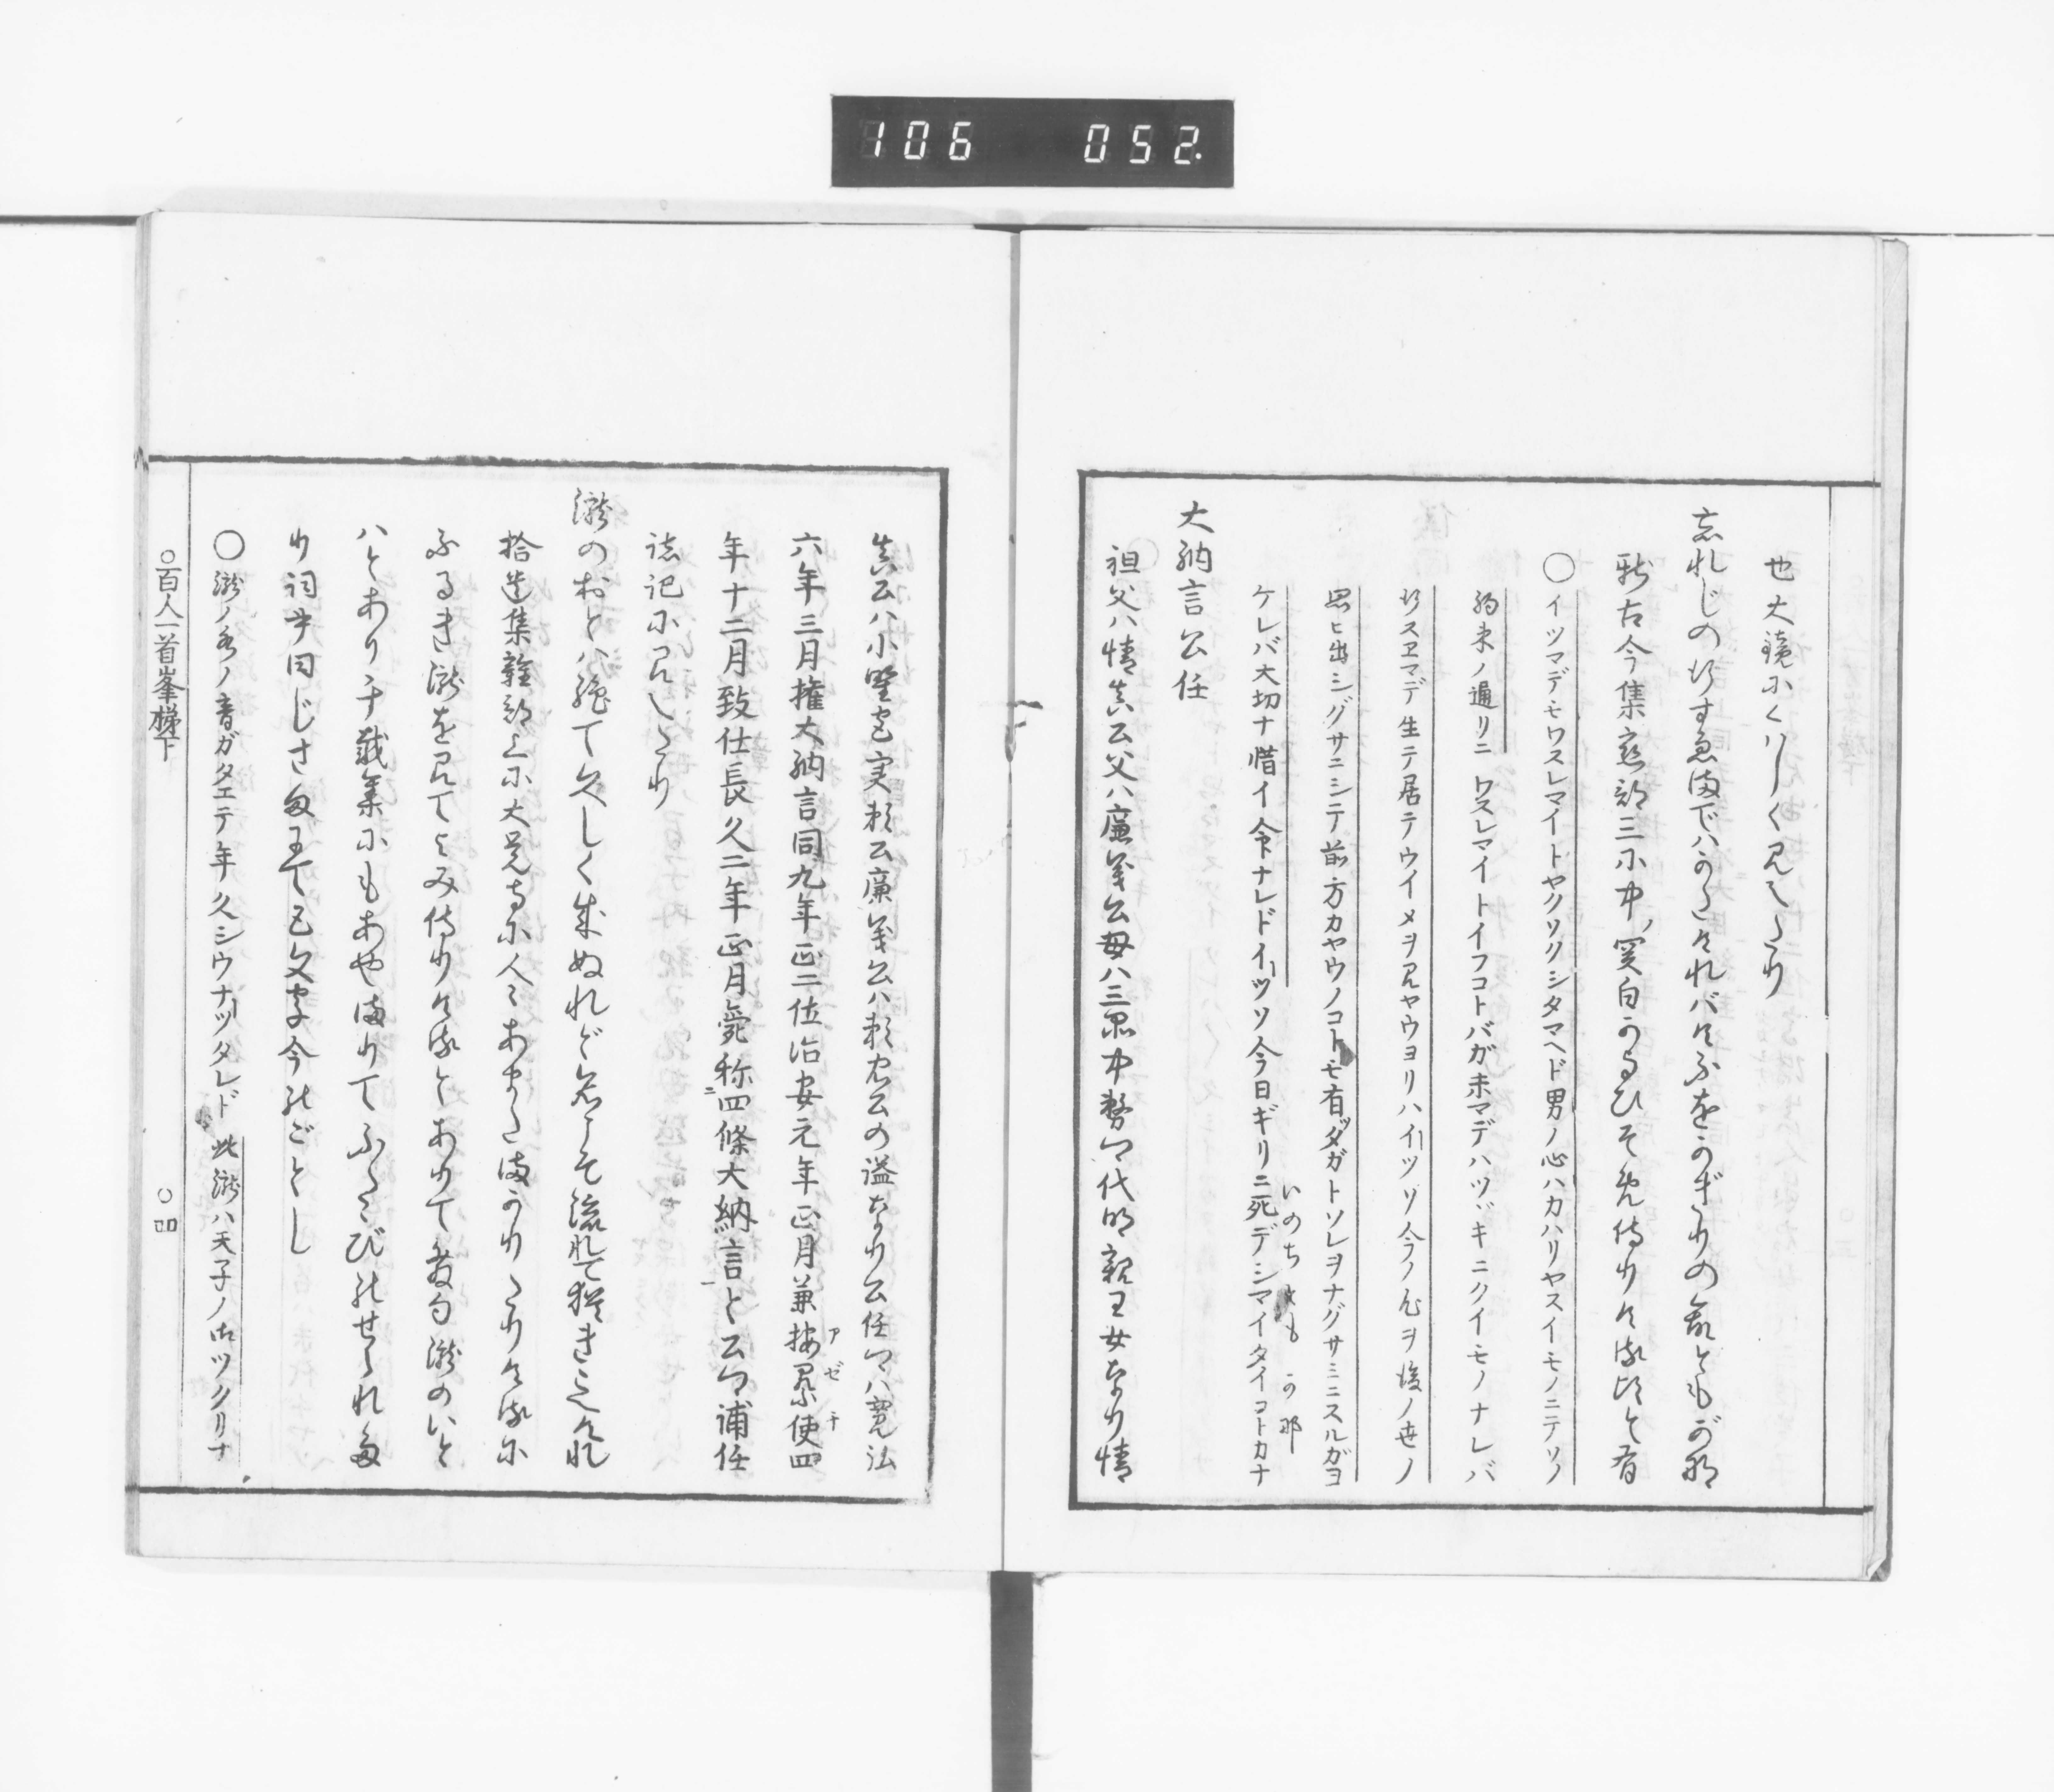 106 052.
也大鏡にくハしく見えたり
忘れじの行すゑまでハかたければけふをかぎりの命ともがな
新古今集恋部三に中ノ関白かよひそめ侍りける頃と有
○イツマデモワスレマイトヤクソクシタマヘド男ノ心ハカハリヤスイモノニテソノ
約束ノ通リニワスレマイトイフコトバガ末マデハツヾキニクイモノナレバ
行スヱマデ生テ居テウイメヲ見ヤウヨリハイツソ今ノ
思ヒ出シグサニシテ前方カヤウノコトモ有タガトソレヲナグサミニスルガヨ
ケレバ大切ナ惜イ命ナレドイツソ今日ギリニ死デシマイタイコトカナ
いのちともか那
大納言公任
祖父ハ清慎公父ハ廉義公母ハ三品中務卿代明親王女なり清
慎公ハ小野宮実頼公廉義公ハ頼忠公の謚なり公任卿ハ寛弘
六年三月権大納言同九年正二位治安元年正月兼按察使四
アゼチ
年十二月致仕長久二年正月薨称二四條大納言一と公卿補任
誌記に見えたり
瀧のおとハ絶て久しく成ぬれど名こそ流れて猶きこえけれ
拾遺集雑部上に大覚寺に人々あまたまかりたりけるに
ふるき瀧を見てよみ侍りけるとありて発句瀧のいと
ハとあり千載集にもあやまりてふたゝびのせられた
り詞書同じさまにて五文字今のごとし
○瀧ノ水ノ音ガタエテ年久シウナツタレド此瀧ハ天子ノ御ツクリナ
○百人一首峯梯下
○四